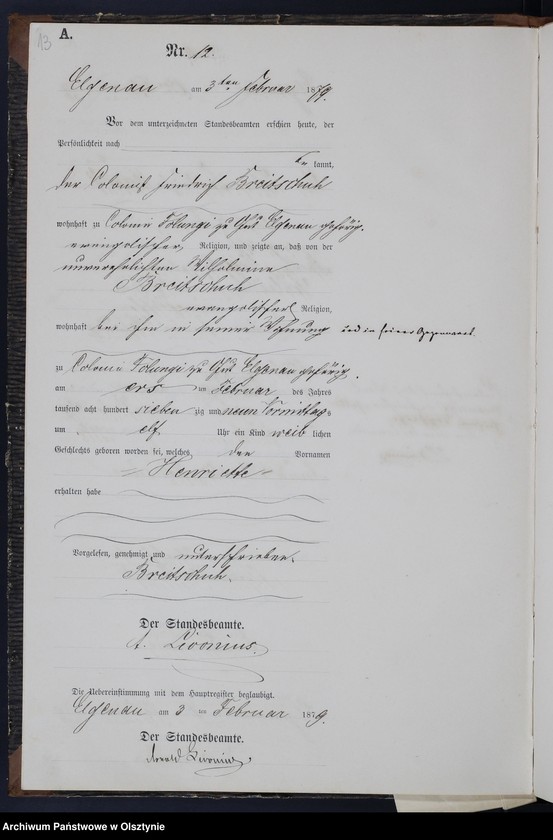 13
A.
Nr. 12.
Elgenau am 3ten Februar 1879.
Vor dem unterzeichneten Standesbeamten erschien heute, der
Persönlichkeit nach
be kannt,
der Colonist Friedrich Breitschuh
wohnhaft zu Colonie Tolungi zu Gut Elgenau gehörig.
evangelischer Religion, und zeigte an, daß von der
unverehelichten Wilhelmine
Breitschuh
evangelischer Religion,
wohnhaft bei ihm in seiner Wohnung und in seiner Gegenwart
zu Colonie Tolungi zu Gut Elgenau gehörig.
am ers ten Februar des Jahres
tausend acht hundert sieben zig und neun Vormittags
um elf Uhr ein Kind weib lichen
Geschlechts geboren worden sei, welches den Vornamen
Henriette
erhalten habe
Vorgelesen, genehmigt und unterschrieben.
Breitschuh.
Der Standesbeamte.
A. Livonius.
Die Uebereinstimmung mit dem Hauptregister beglaubigt.
Elgenau am 3 ten Februar 1879.
Der Standesbeamte.
Livonius
Archiwum Państwowe w Olsztynie